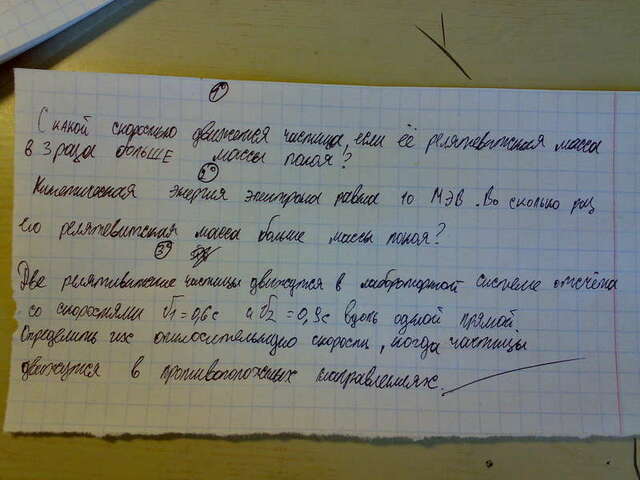 1
С какой скоростью движется частица, если её релятевитская масса
в 3 раза больше массы покоя?
2
Кинетическая энергия электрона равна 10 МЭВ. Во сколько раз
его релятевитская масса больше массы покоя?
3
Две релятивитские частицы движутся в лабораторной системе отсчёта
со скоростями v1=0,6c и v2=0,9c вдоль одной прямой.
Определить их относительную скорость, когда частицы
движутся в противоположных направлениях.